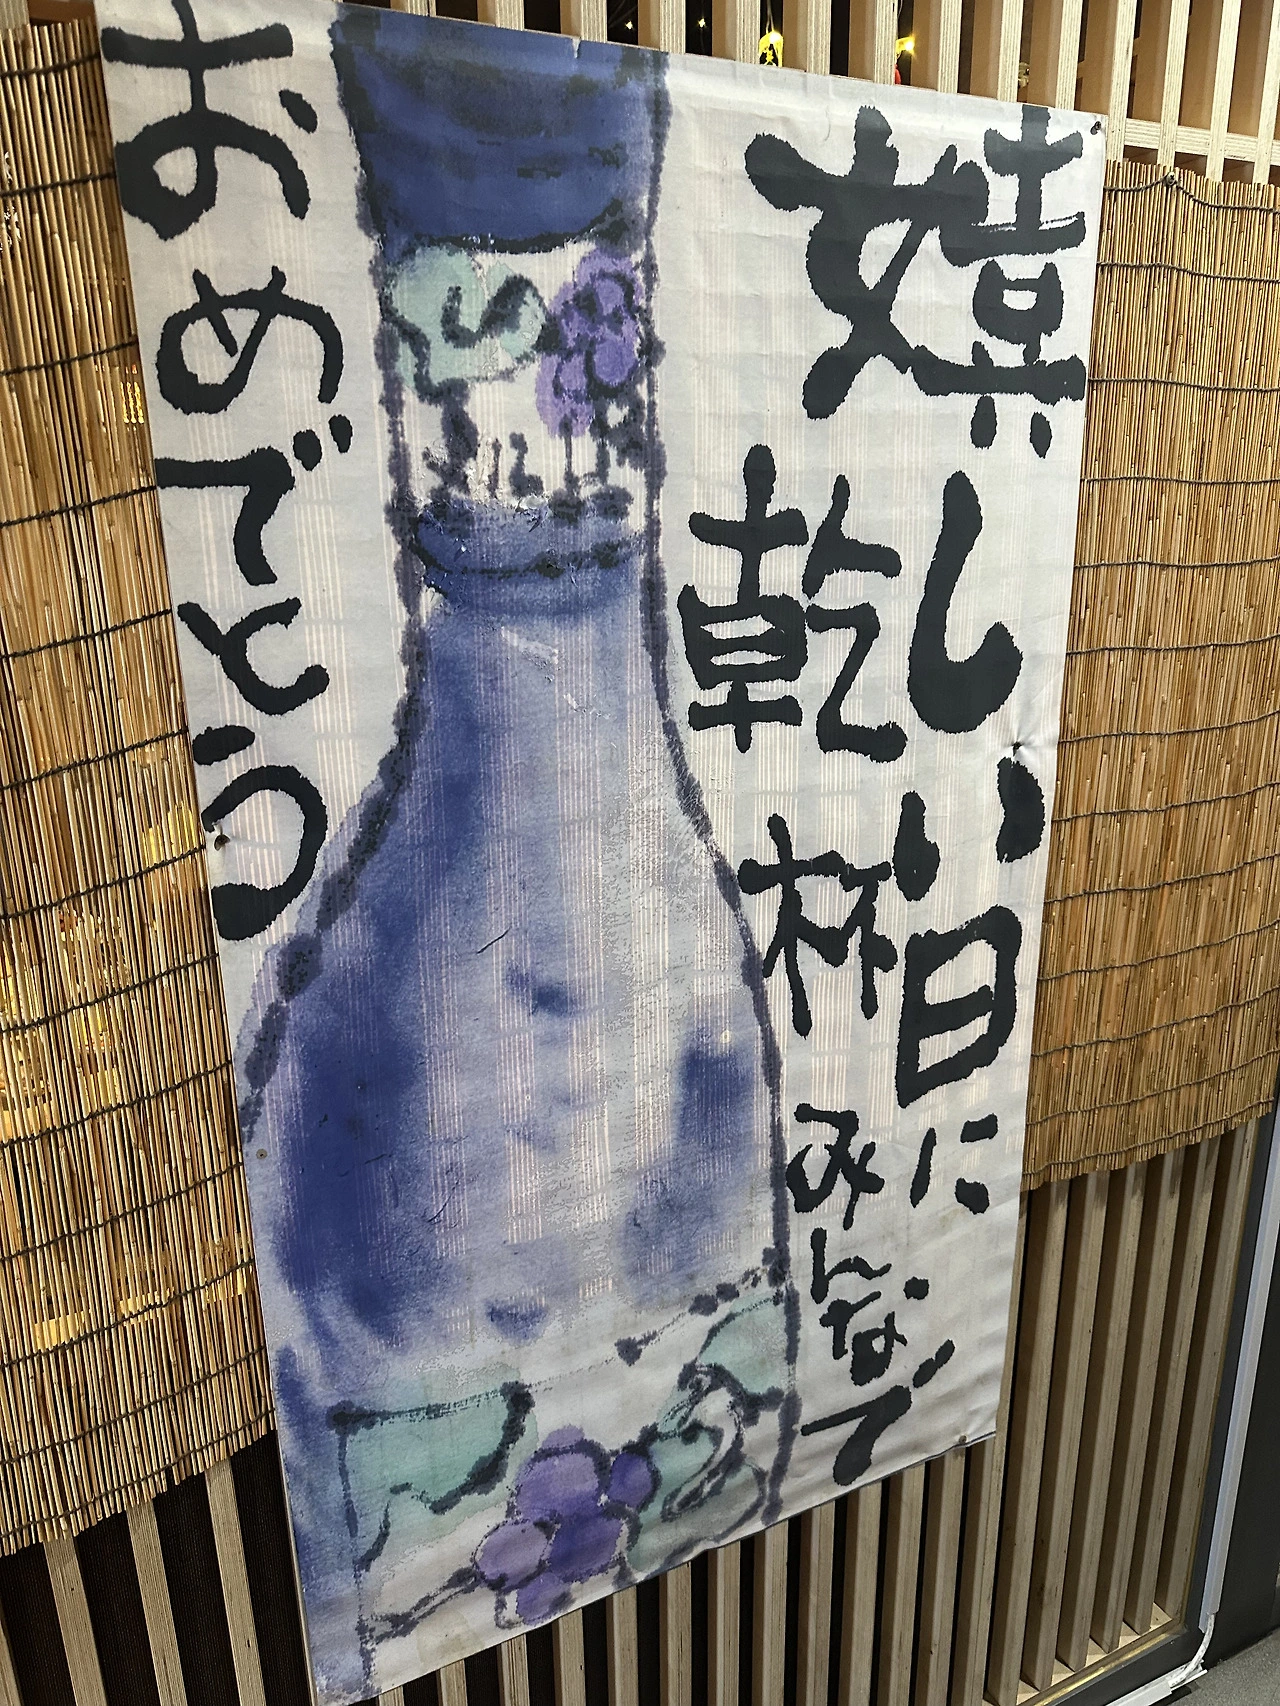 嬉しい日に
乾杯みんなで
おめでとう